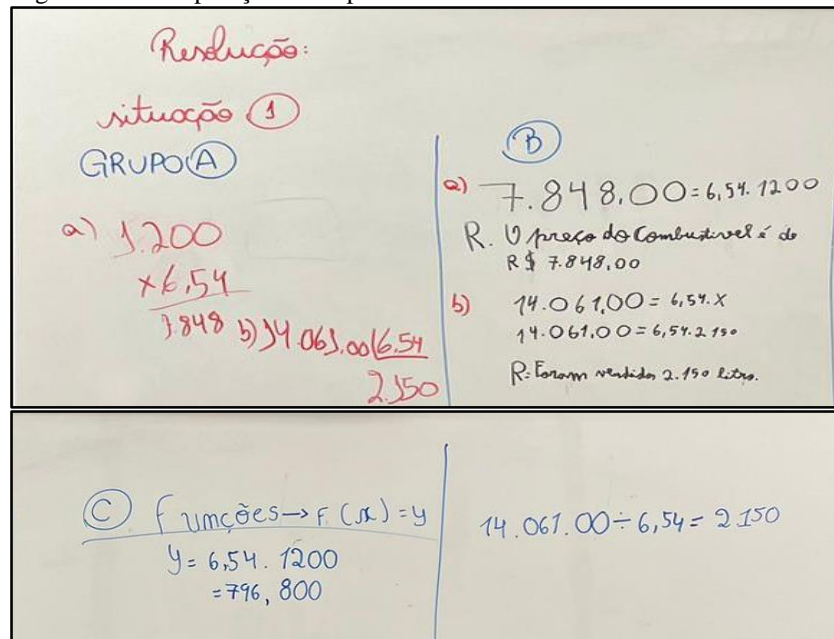 Resolução:
situação 1
GRUPO A
a) 1.200
x 6,54
7.848
b) 14.061.00 6.54
2.150
B
a) 7.848,00 = 6,54. 1200
R. O preço do Combustivel é de
R$ 7.848,00
b) 14.061,00 = 6,54. X
14.061,00 = 6,54. 2 150
R: Foram vendidos 2.150 litros.
C funções → F (x) = y
y = 6,54 . 1200
= 796, 800
14.061.00 ÷ 6,54 = 2 150